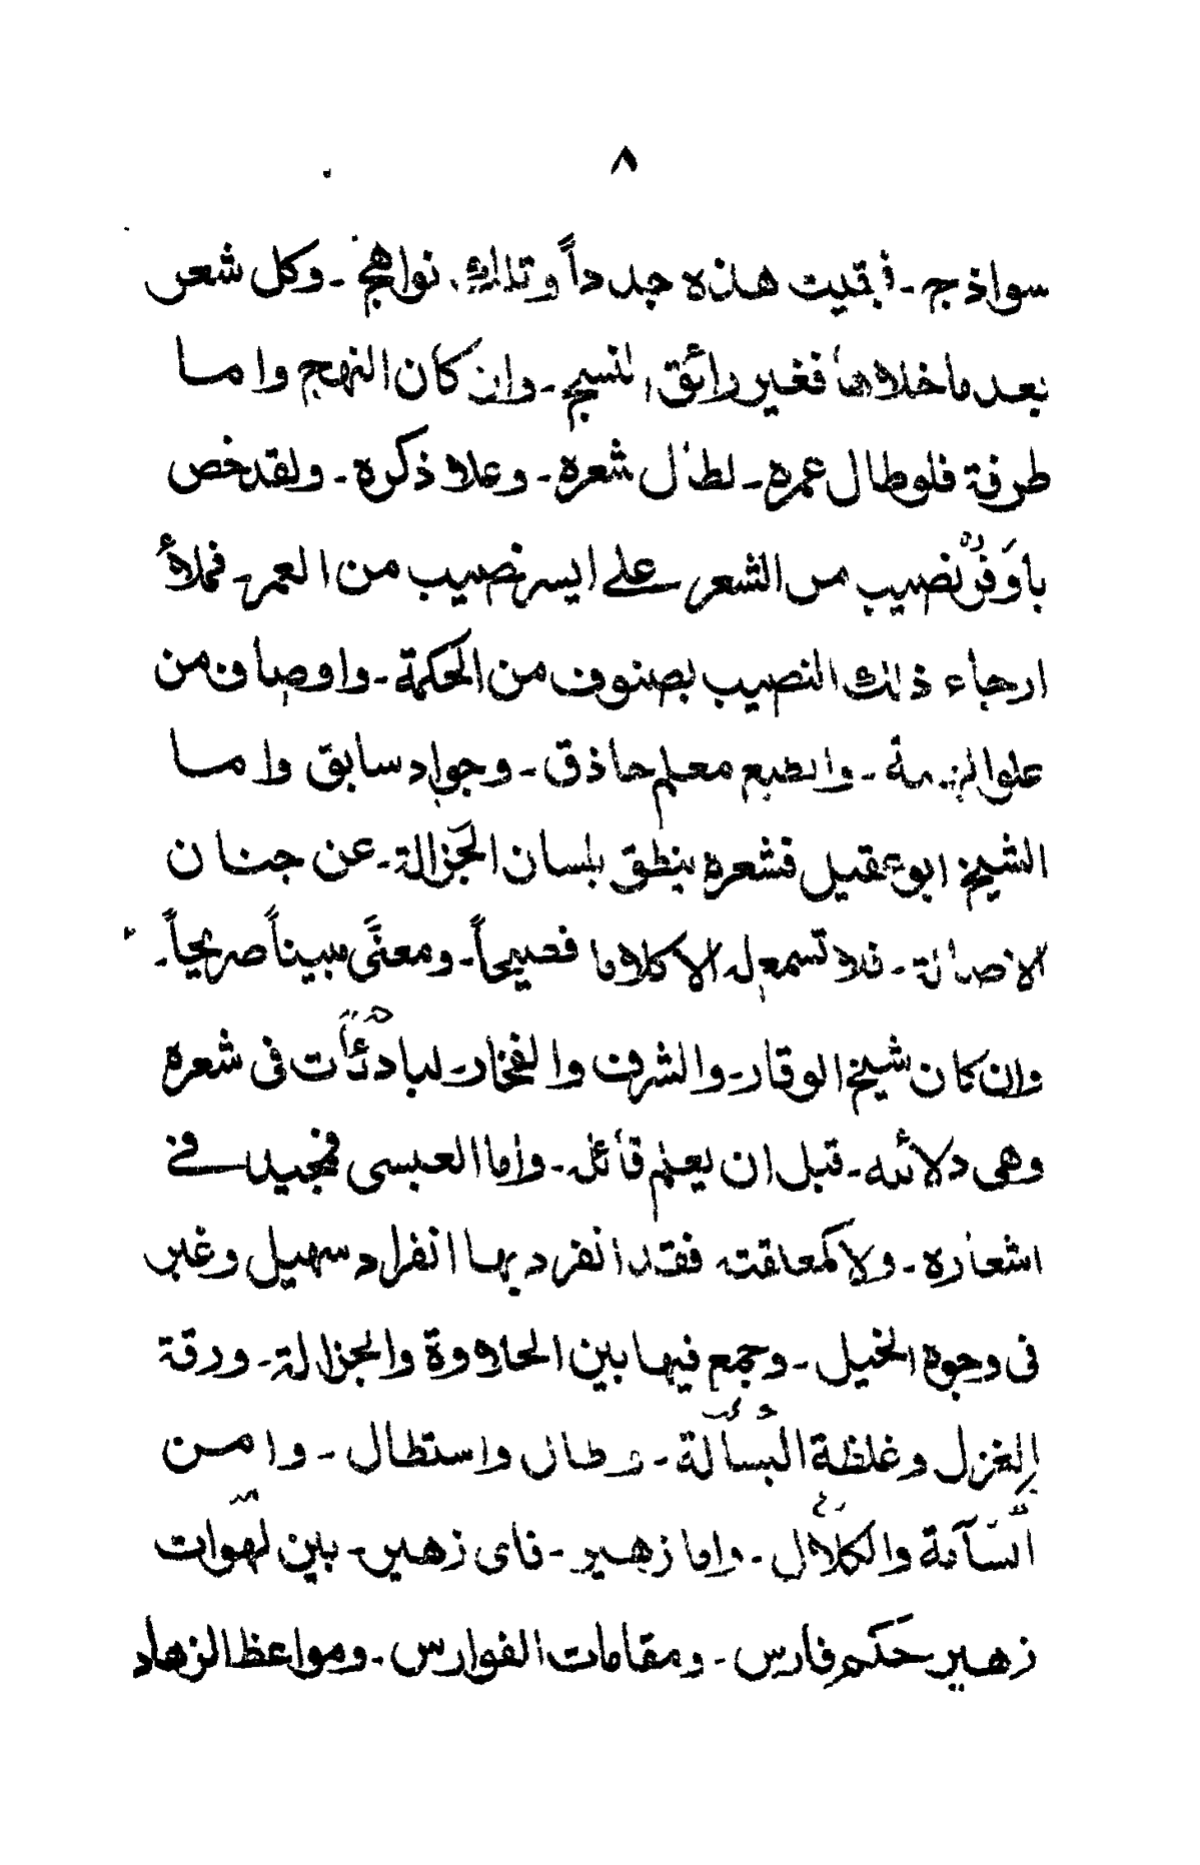 ٨
سواذج ـ فبقيت هذه جدداً وتلك نواهج ـ وكل شعر
بعد ما خلاها فغير رائق النسج ـ وان كان النهج واما
طرفة فلو طال عمره ـ لطال شعره ـ وعلا ذكره ـ ولقد خص
باوفر نصيب من الشعر على ايسر نصيب من العمر ـ فملأ
ارجاء ذلك النصيب بصنوف من الحكمة ـ واوصاف من
علو الهمة ـ والطبع معلم حاذق ـ وجواد سابق واما
الشيخ ابو عقيل فشعره ينطق بلسان الجزالة ـ عن جنان
الاصالة ـ فلا تسمع له الا كلاما فصيحاً ـ ومعنًى مبيناً صريحاً ـ
وان كان شيخ الوقار ـ والشرف والفخار ـ لبادئات فى شعره
وهى دلائله ـ قبل ان يعلم قائله ـ واما العبسى فمجيد فى
اشعاره ـ ولا كمعلقته فقد انفرد بها انفراد سهيل وغبر
فى وجوه الخيل ـ وجمع فيها بين الحلاوة والجزالة ـ ورقة
الغزل وغلظة البسالة ـ وطال واستطال ـ وامن
السآمة والكلال ـ واما زهير ـ فاى زهير ـ بين لهوات
زهير حكم فارس ـ ومقامات الفوارس ـ ومواعظ الزهاد